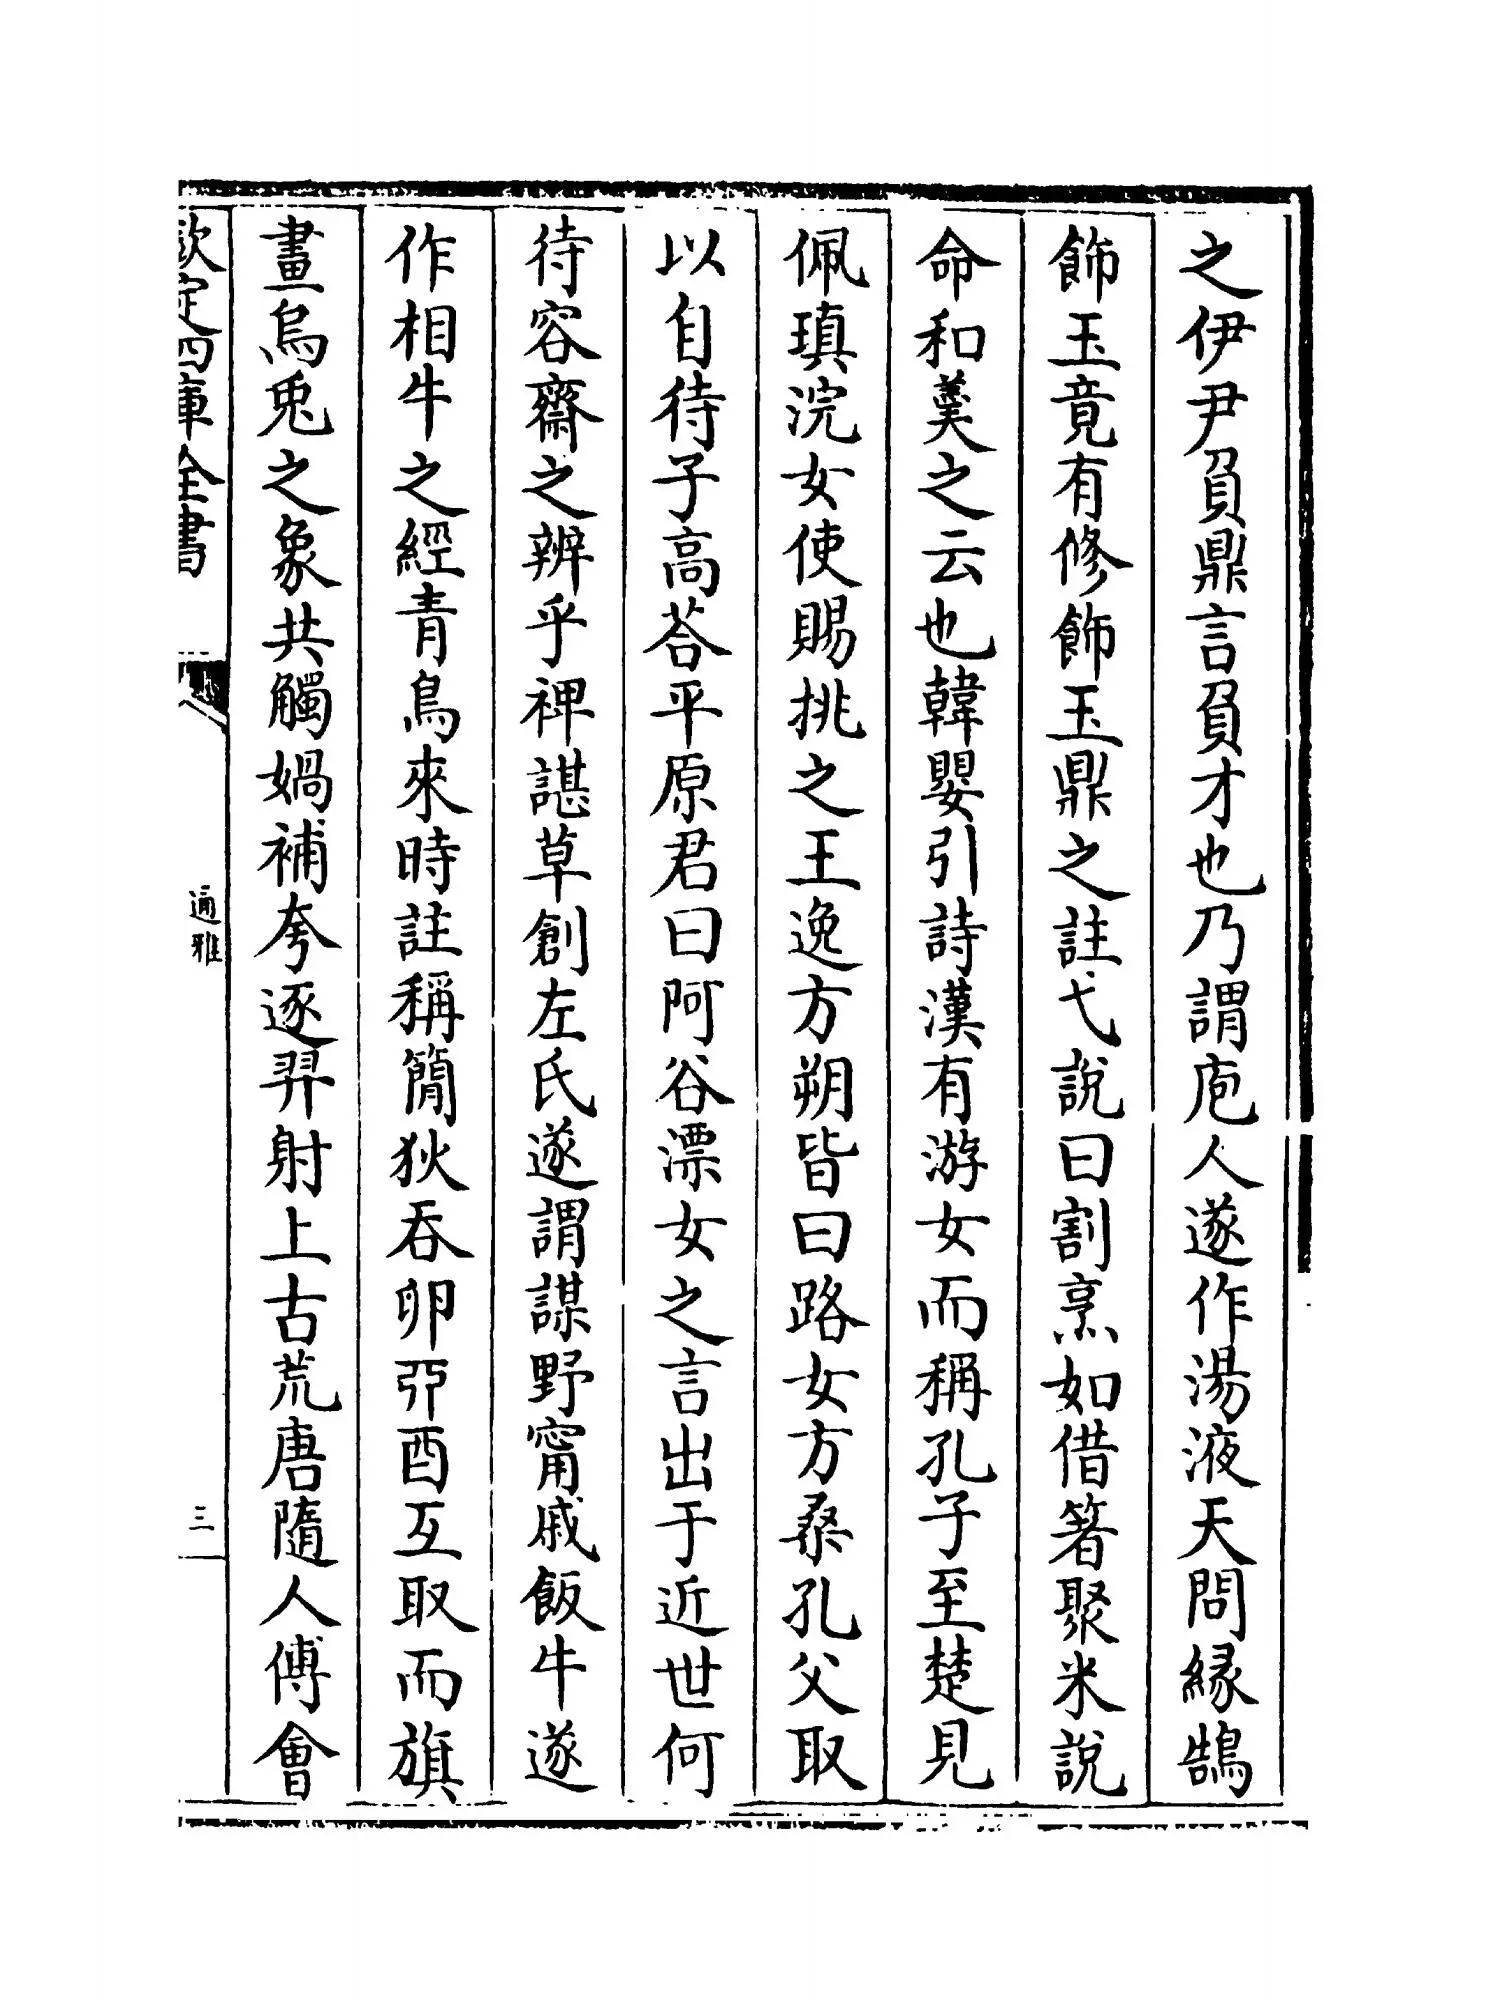 之伊尹負鼎言負才也乃謂庖人遂作湯液天問緣鵠
飾玉竟有修飾玉鼎之註弋說曰割烹如借箸聚米說
命和羹之云也韓嬰引詩漢有游女而稱孔子至楚見
佩瑱浣女使賜挑之王逸方朔皆曰路女方桑孔父取
以自待子高荅平原君曰阿谷漂女之言出于近世何
待容齋之辨乎裨諶草創左氏遂謂謀野甯戚飯牛遂
作相牛之經青鳥來時註稱簡狄吞卵丣酉互取而旗
畫烏兎之象共觸媧補夸逐羿射上古荒唐隨人傅會
欽定四庫全書
通雅
三